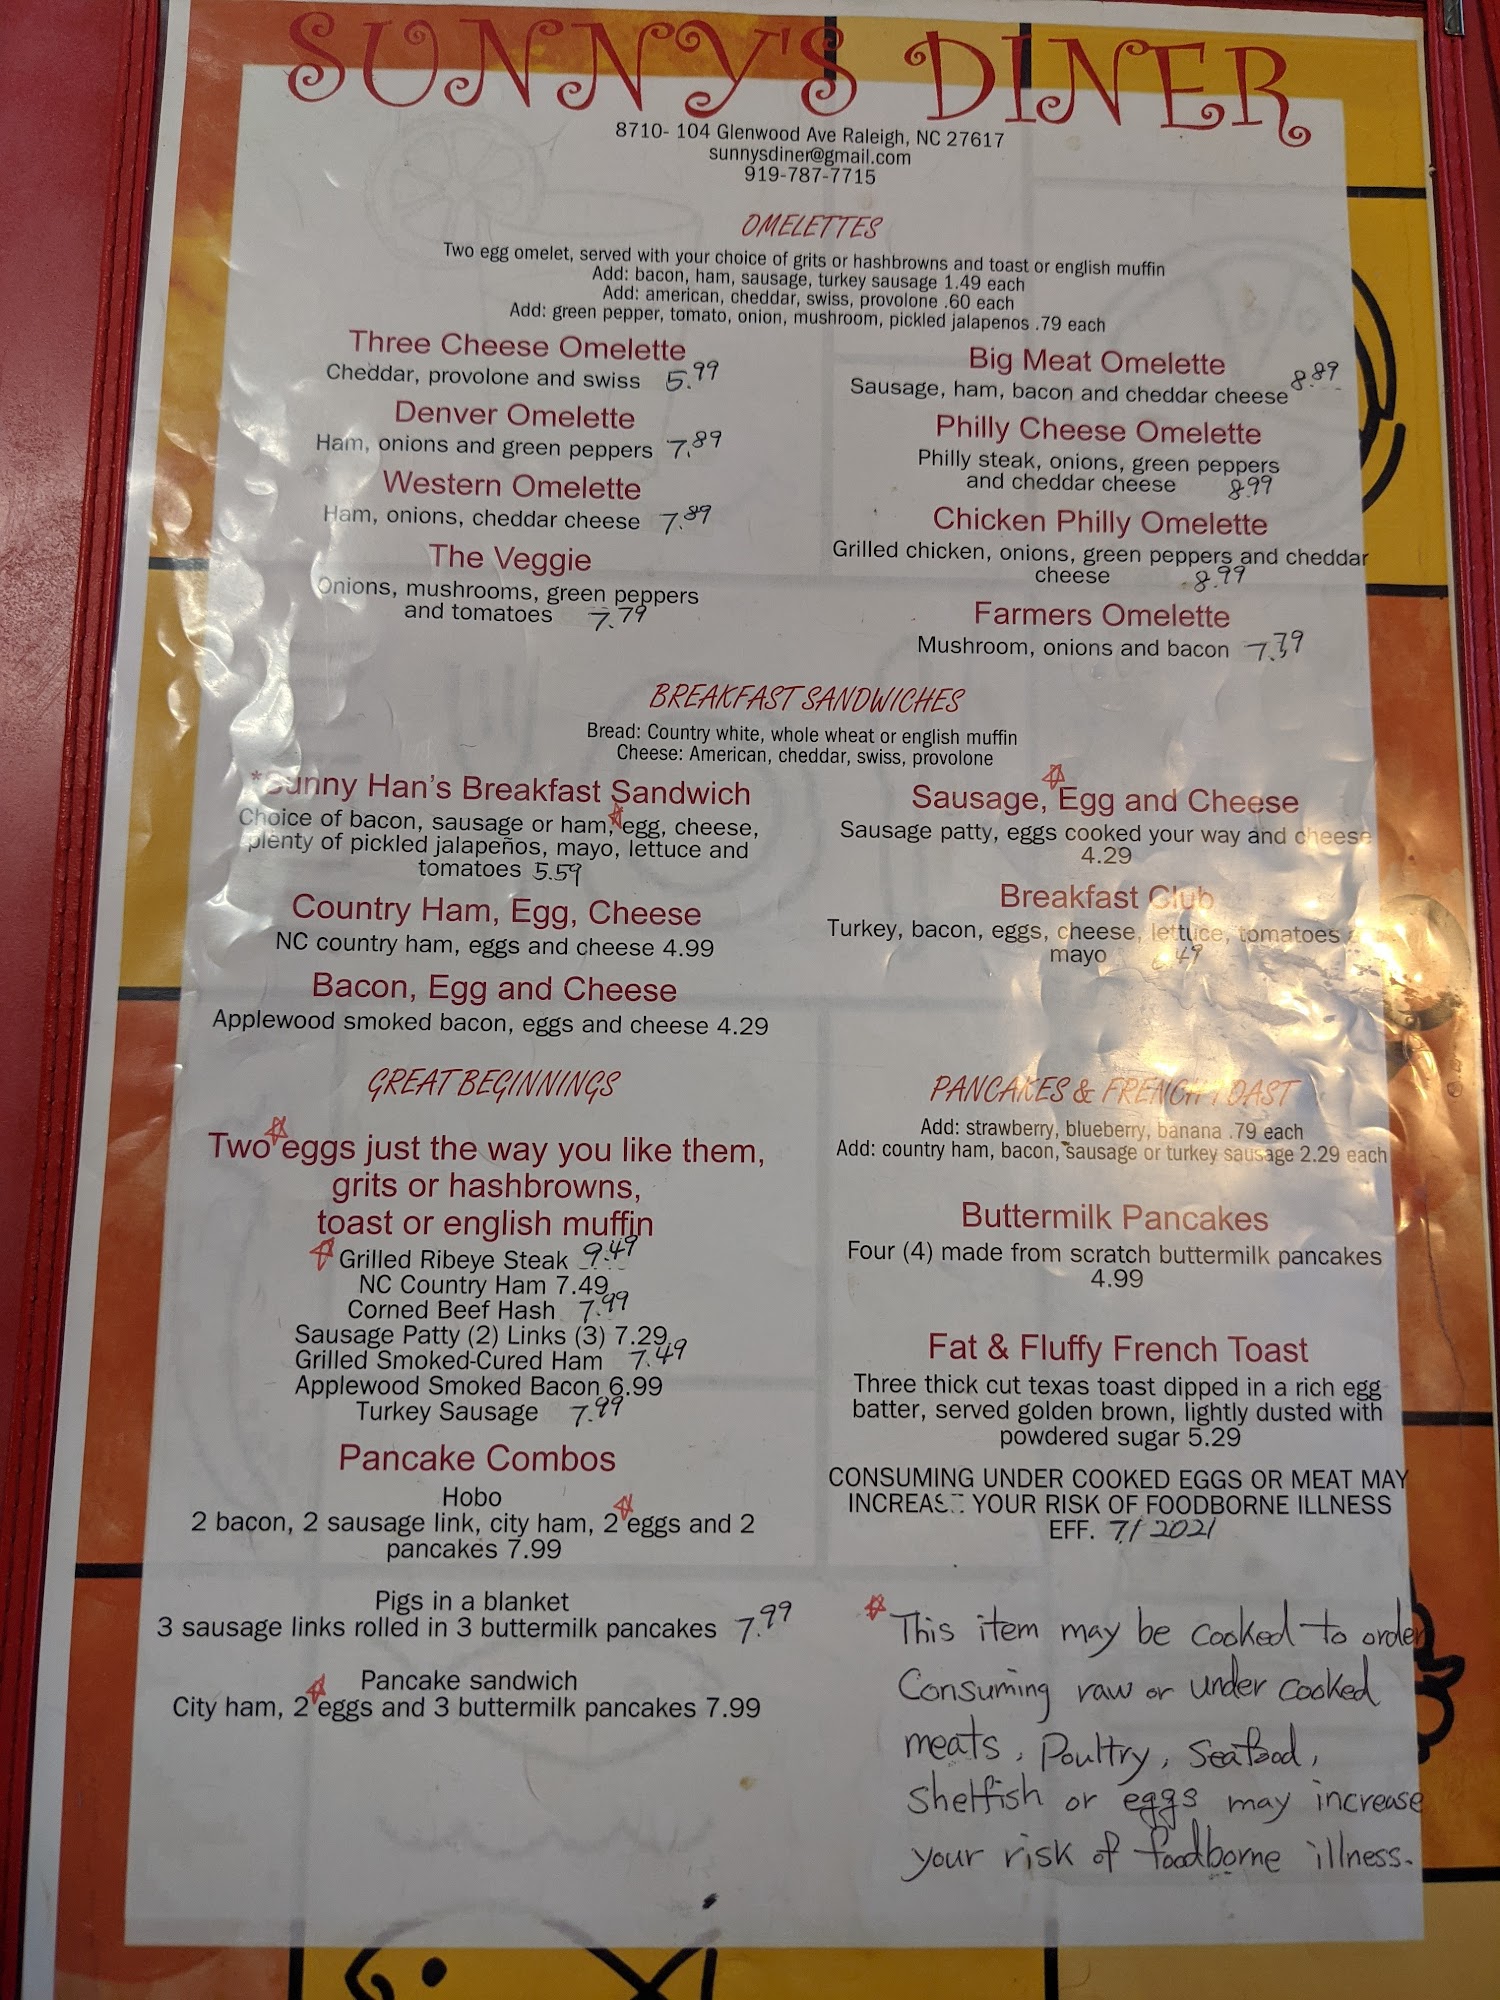 SUNNY'S DINER
8710- 104 Glenwood Ave Raleigh, NC 27617
sunnysdiner@gmail.com
919-787-7715
OMELETTES
Two egg omelet, served with your choice of grits or hashbrowns and toast or english muffin
Add: bacon, ham, sausage, turkey sausage 1.49 each
Add: american, cheddar, swiss, provolone .60 each
Add: green pepper, tomato, onion, mushroom, pickled jalapenos .79 each
Three Cheese Omelette
Cheddar, provolone and swiss 5.99
Denver Omelette
Ham, onions and green peppers 7.89
Western Omelette
Ham, onions, cheddar cheese 7.89
The Veggie
Onions, mushrooms, green peppers
and tomatoes 7.79
Big Meat Omelette
Sausage, ham, bacon and cheddar cheese 8.89
Philly Cheese Omelette
Philly steak, onions, green peppers
and cheddar cheese 8.99
Chicken Philly Omelette
Grilled chicken, onions, green peppers and cheddar
cheese 8.99
Farmers Omelette
Mushroom, onions and bacon
BREAKFAST SANDWICHES
Bread: Country white, whole wheat or english muffin
Cheese: American, cheddar, swiss, provolone
*Sunny Han's Breakfast Sandwich
Choice of bacon, sausage or ham, egg, cheese,
plenty of pickled jalapeños, mayo, lettuce and
tomatoes 5.59
Country Ham, Egg, Cheese
NC country ham, eggs and cheese 4.99
Bacon, Egg and Cheese
Applewood smoked bacon, eggs and cheese 4.29
Sausage, Egg and Cheese
Sausage patty, eggs cooked your way and cheese
4.29
Breakfast Club
Turkey, bacon, eggs, cheese, lettuce, tomatoes
mayo
GREAT BEGINNINGS
Two eggs just the way you like them,
grits or hashbrowns,
toast or english muffin
Grilled Ribeye Steak 9.49
NC Country Ham 7.49
Corned Beef Hash 7.99
Sausage Patty (2) Links (3) 7.29
Grilled Smoked-Cured Ham 7.49
Applewood Smoked Bacon 6.99
Turkey Sausage 7.99
Pancake Combos
Hobo
2 bacon, 2 sausage link, city ham, 2 eggs and 2
pancakes 7.99
Pigs in a blanket
3 sausage links rolled in 3 buttermilk pancakes 7.99
Pancake sandwich
City ham, 2 eggs and 3 buttermilk pancakes 7.99
PANCAKES & FRENCH TOAST
Add: strawberry, blueberry, banana .79 each
Add: country ham, bacon, sausage or turkey sausage 2.29 each
Buttermilk Pancakes
Four (4) made from scratch buttermilk pancakes
4.99
Fat & Fluffy French Toast
Three thick cut texas toast dipped in a rich egg
batter, served golden brown, lightly dusted with
powdered sugar 5.29
CONSUMING UNDER COOKED EGGS OR MEAT MAY
INCREASE YOUR RISK OF FOODBORNE ILLNESS
EFF. 7/2021
This item may be cooked to order
Consuming raw or under cooked
meats, Poultry, Seafood,
Shelfish or eggs may increase
your risk of foodborne illness.